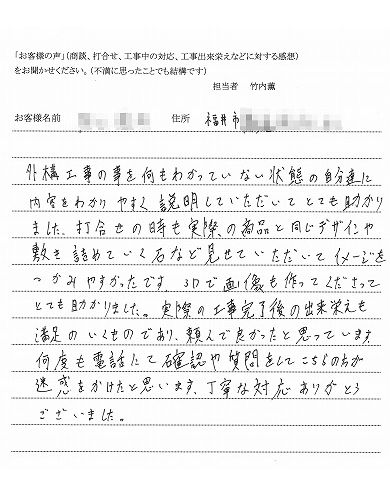 「お客様の声」(商談、打合せ、工事中の対応、工事出来栄えなどに対する感想)
をお聞かせください。(不満に思ったことでも結構です)
担当者 竹内薫
お客様名前 住所 福井市
外構工事の事を何もわかっていない状態の自分達に
内容をわかりやすく説明していただいてとても助かり
ました。打合せの時も実際の商品と同じデザインや
敷き詰めていく石など見せていただいてイメージを
つかみやすかったです。3Dで画像も作ってくださって
とても助かりました。実際の工事完了後の出来栄えも
満足のいくものであり、頼んで良かったと思っています。
何度も電話にて確認や質問をしてこちらの方が
迷惑をかけたと思います。丁寧な対応ありがとう
ございました。